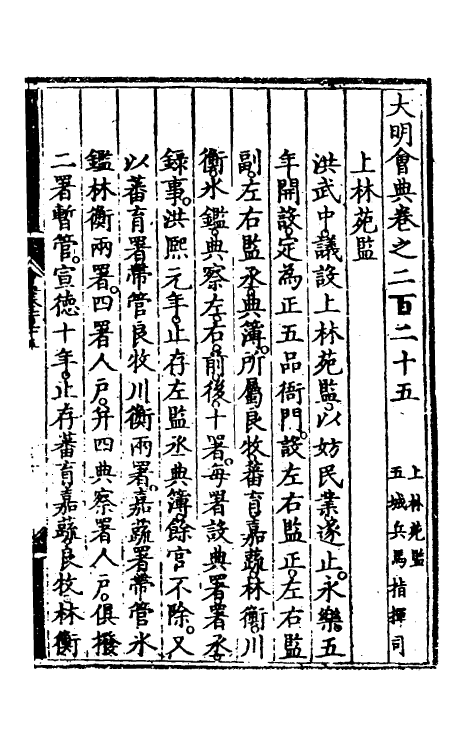 大明會典卷之二百二十五
上林苑監
五城兵馬指揮司
上林苑監
洪武中。議設上林苑監。以妨民業遂止。永樂五
年開設。定為正五品衙門。設左右監正。左右監
副。左右監丞。典簿。所屬良牧。蕃育。嘉蔬。林衡。川
衡。氷鑑。典察左。右。前。後。十署。每署設典署。署丞。
録事。洪熙元年。止存左監丞典簿。餘官不除。又
以蕃育署帶管良牧川衡兩署。嘉蔬署帶管氷
鑑林衡兩署。四署人戶。并四典察署人戶。俱撥
二署暫管。宣德十年。止存蕃育嘉蔬良牧林衡